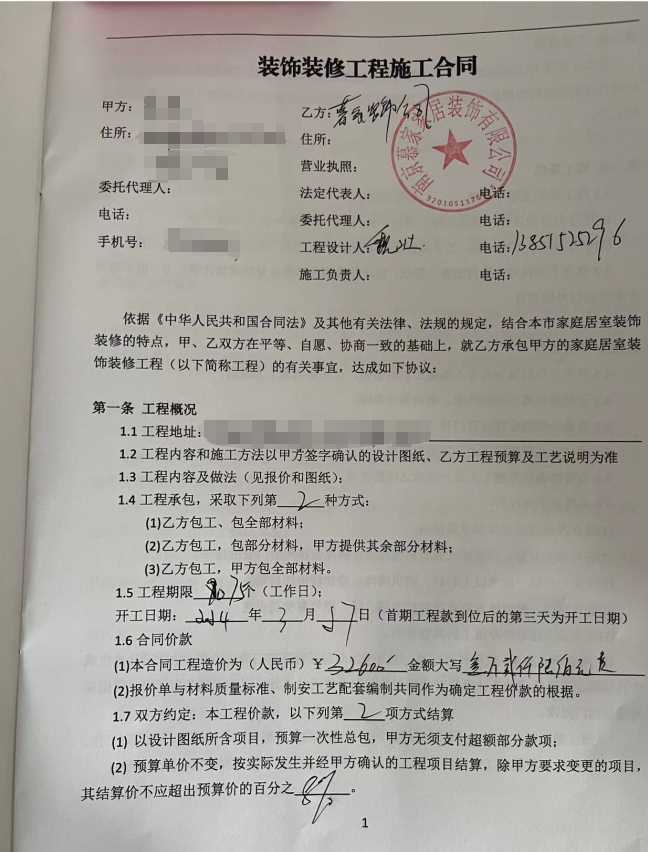 装饰装修工程施工合同
甲方：
乙方：慕家装饰公司
南京慕家家居装饰有限公司
住所：
住所：
营业执照：
委托代理人：
法定代表人：
电话：
电话：
委托代理人：
电话：
手机号：
工程设计人：
电话：13851525296
施工负责人：
电话：
依据《中华人民共和国合同法》及其他有关法律、法规的规定，结合本市家庭居室装饰
装修的特点，甲、乙双方在平等、自愿、协商一致的基础上，就乙方承包甲方的家庭居室装
饰装修工程（以下简称工程）的有关事宜，达成如下协议：
第一条 工程概况
1.1 工程地址：
1.2 工程内容和施工方法以甲方签字确认的设计图纸、乙方工程预算及工艺说明为准
1.3 工程内容及做法（见报价和图纸）；
1.4 工程承包，采取下列第 2 种方式：
(1)乙方包工、包全部材料；
(2)乙方包工，包部分材料，甲方提供其余部分材料；
(3)乙方包工，甲方包全部材料。
1.5 工程期限 75个（工作日）；
开工日期：2024 年 3 月 日（首期工程款到位后的第三天为开工日期）
1.6 合同价款
(1)本合同工程造价为（人民币）￥32600 金额大写
(2)报价单与材料质量标准、制安工艺配套编制共同作为确定工程价款的根据。
1.7 双方约定：本工程价款，以下列第 2 项方式结算
(1) 以设计图纸所含项目，预算一次性总包，甲方无须支付超额部分款项；
(2) 预算单价不变，按实际发生并经甲方确认的工程项目结算，除甲方要求变更的项目，
其结算价不应超出预算价的百分之 8% 。
1